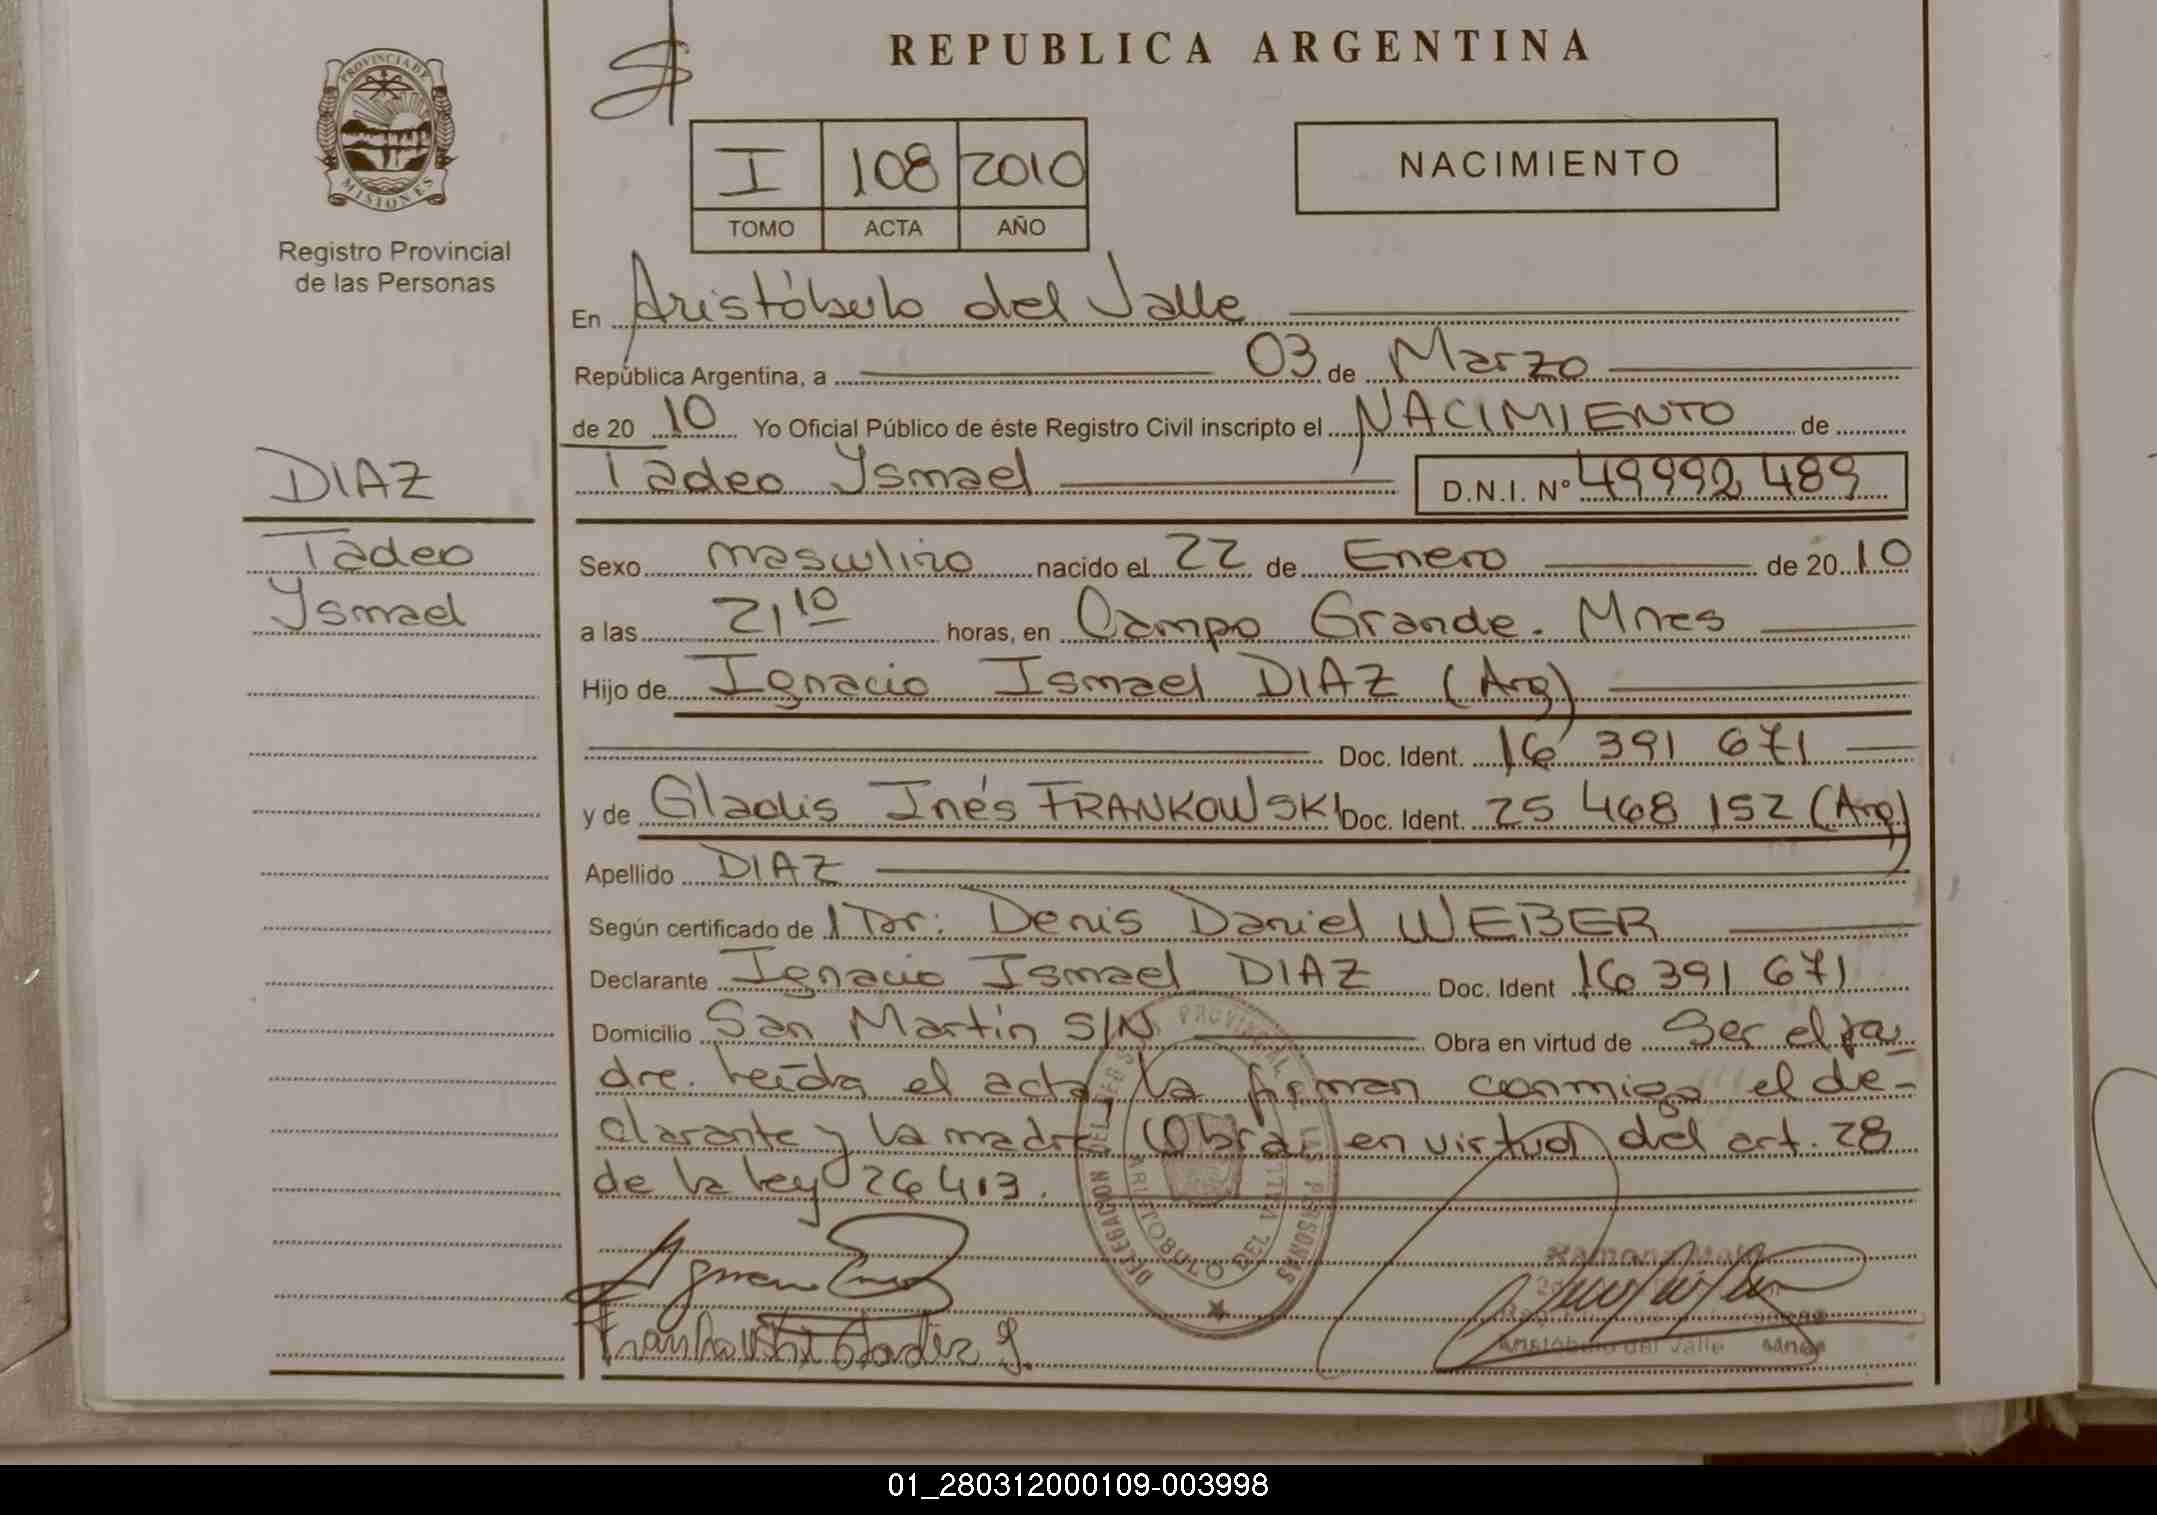 REPUBLICA ARGENTINA
PROVINCIA DE
MISIONES
Registro Provincial
de las Personas
I 108 2010
TOMO ACTA AÑO
NACIMIENTO
En Aristóbulo del Valle
República Argentina, a 03 de Marzo
de 20 10 Yo Oficial Público de éste Registro Civil inscripto el NACIMIENTO de
DIAZ
Tadeo Ysmael D.N.I. Nº 49992 489
Tadeo
Ysmael
Sexo masculino nacido el 22 de Enero de 20 10
a las 21 10 horas, en Campo Grande. Mnes
Hijo de Ignacio Ismael DIAZ (Arg)
Doc. Ident. 16 391 671
y de Gladis Inés FRANKOWSKI Doc. Ident. 25 468 152 (Arg)
Apellido DIAZ
Según certificado de l Dr. Denis Daniel WEBER
Declarante Ignacio Ismael DIAZ Doc. Ident 16 391 671
Domicilio San Martín S/N Obra en virtud de Ser el pa-
dre. Leída el acta la firman conmigo el de-
clarante y la madre (Obra) en virtud del art. 28
de la Ley 26413.
DELEGACION DEL REG. PROVINCIAL DE LAS PERSONAS
ARISTOBULO DEL VALLE
Frankowski Gladiz I.
Aristóbulo del Valle Mnes
01_280312000109-003998